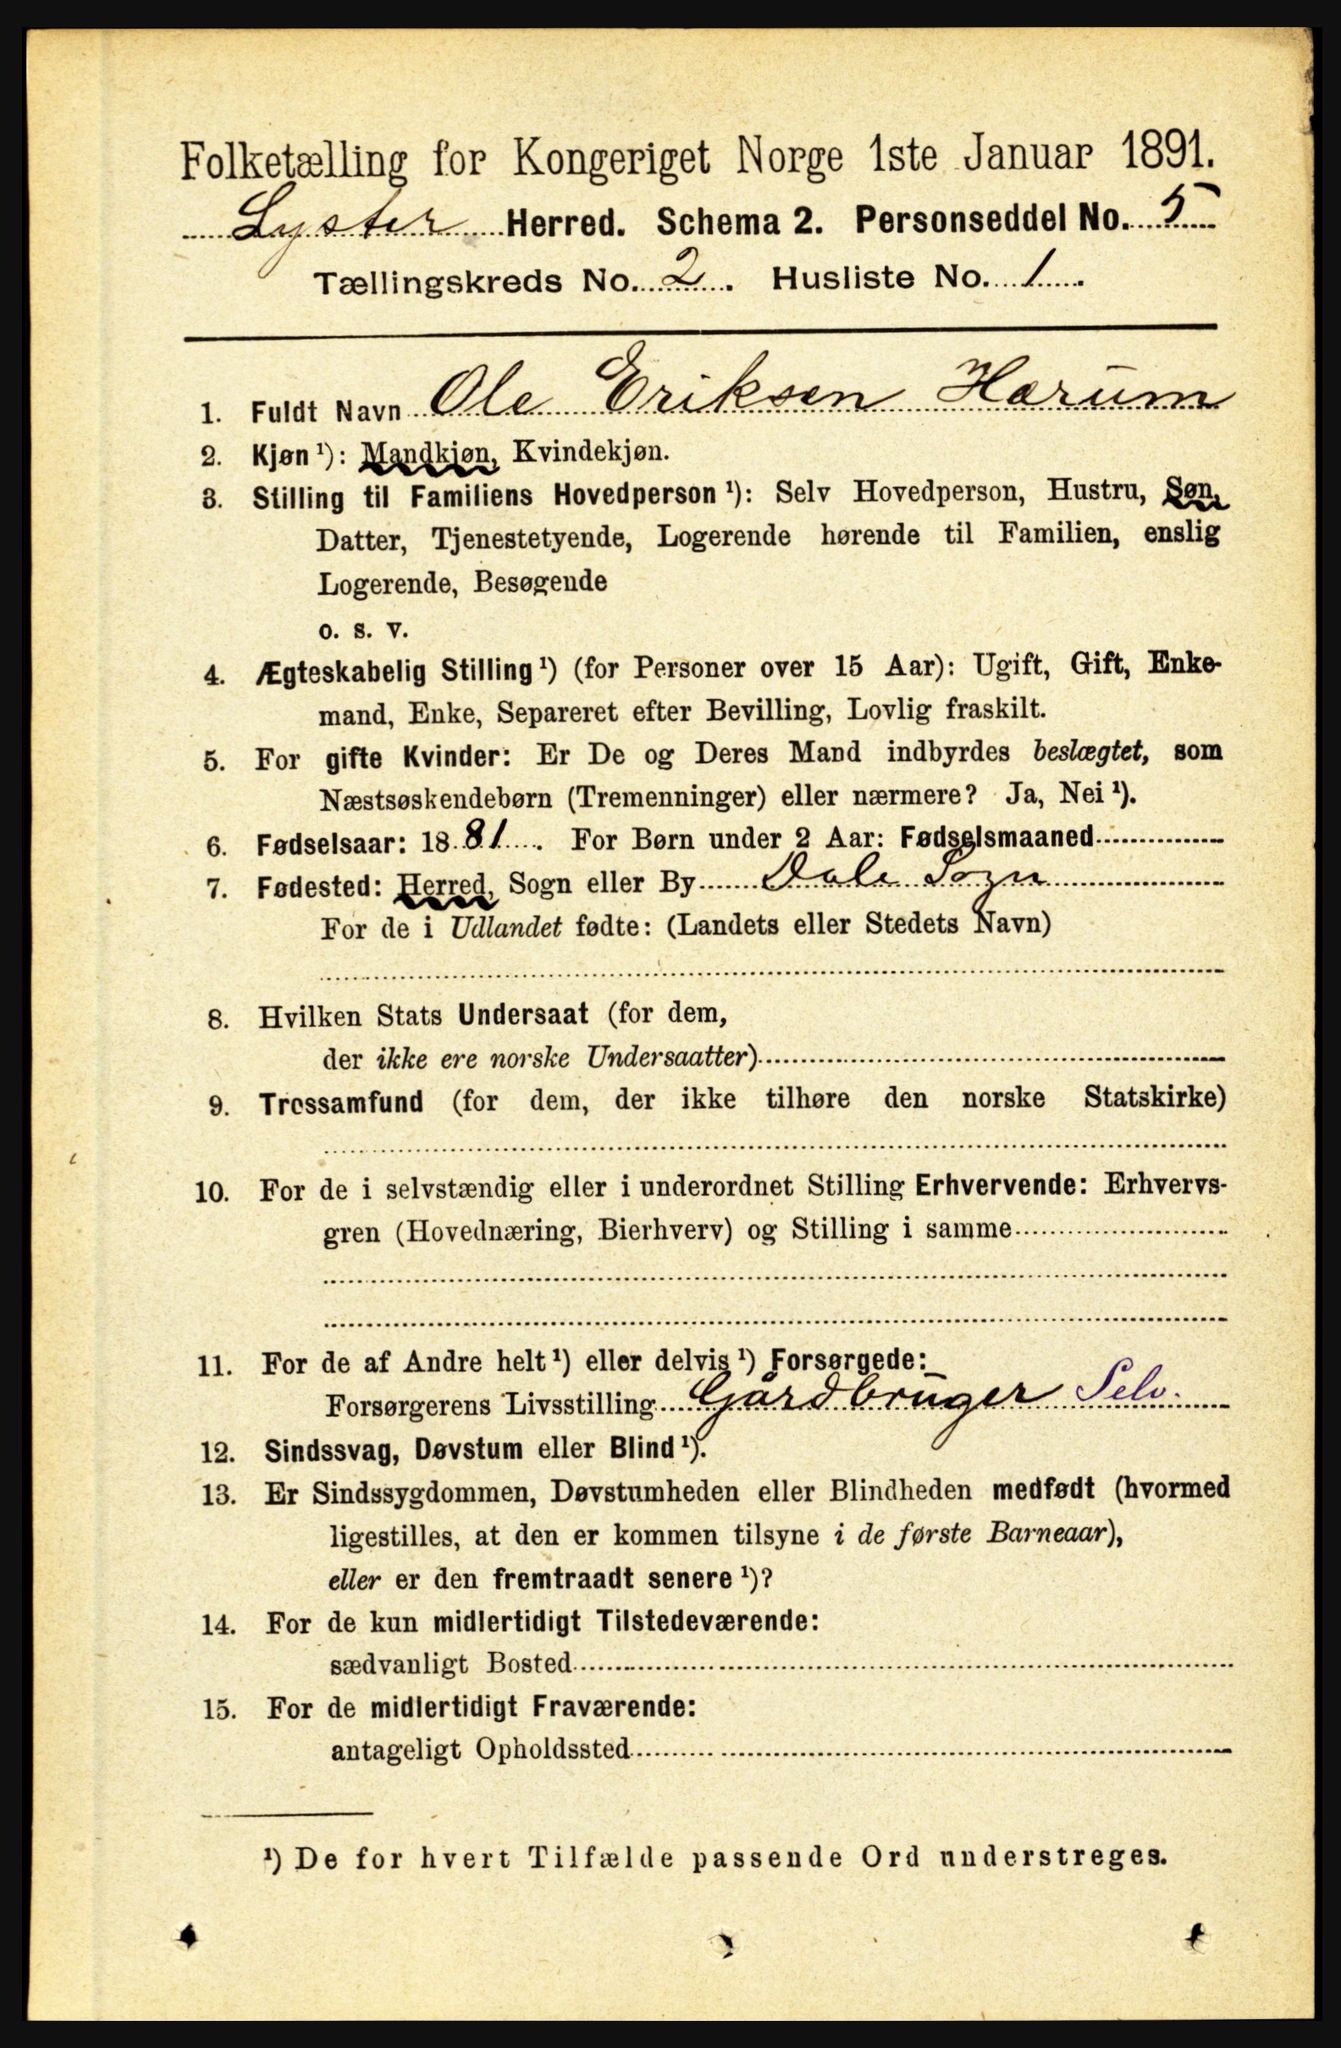 Folketælling for Kongeriget Norge 1ste Januar 1891.
Lyster Herred. Schema 2. Personseddel No. 5
Tællingskreds No. 2. Husliste No. 1.
1. Fuldt Navn Ole Eriksen Harum
2. Kjøn ¹): Mandkjøn, Kvindekjøn.
3. Stilling til Familiens Hovedperson ¹): Selv Hovedperson, Hustru, Søn,
Datter, Tjenestetyende, Logerende hørende til Familien, enslig
Logerende, Besøgende
o. s. v.
4. Ægteskabelig Stilling ¹) (for Personer over 15 Aar): Ugift, Gift, Enke-
mand, Enke, Separeret efter Bevilling, Lovlig fraskilt.
5. For gifte Kvinder: Er De og Deres Mand indbyrdes beslægtet, som
Næstsøskendebørn (Tremenninger) eller nærmere? Ja, Nei ¹).
6. Fødselsaar: 1881. For Børn under 2 Aar: Fødselsmaaned
7. Fødested: Herred, Sogn eller By Dale Sogn
For de i Udlandet fødte: (Landets eller Stedets Navn)
8. Hvilken Stats Undersaat (for dem,
der ikke ere norske Undersaatter)
9. Trossamfund (for dem, der ikke tilhøre den norske Statskirke)
10. For de i selvstændig eller i underordnet Stilling Erhvervende: Erhvervs-
gren (Hovednæring, Bierhverv) og Stilling i samme
11. For de af Andre helt ¹) eller delvis ¹) Forsørgede:
Forsørgerens Livsstilling Gårdbruger Selv.
12. Sindssvag, Døvstum eller Blind ¹).
13. Er Sindssygdommen, Døvstumheden eller Blindheden medfødt (hvormed
ligestilles, at den er kommen tilsyne i de første Barneaar),
eller er den fremtraadt senere ¹)?
14. For de kun midlertidigt Tilstedeværende:
sædvanligt Bosted
15. For de midlertidigt Fraværende:
antageligt Opholdssted
¹) De for hvert Tilfælde passende Ord understreges.